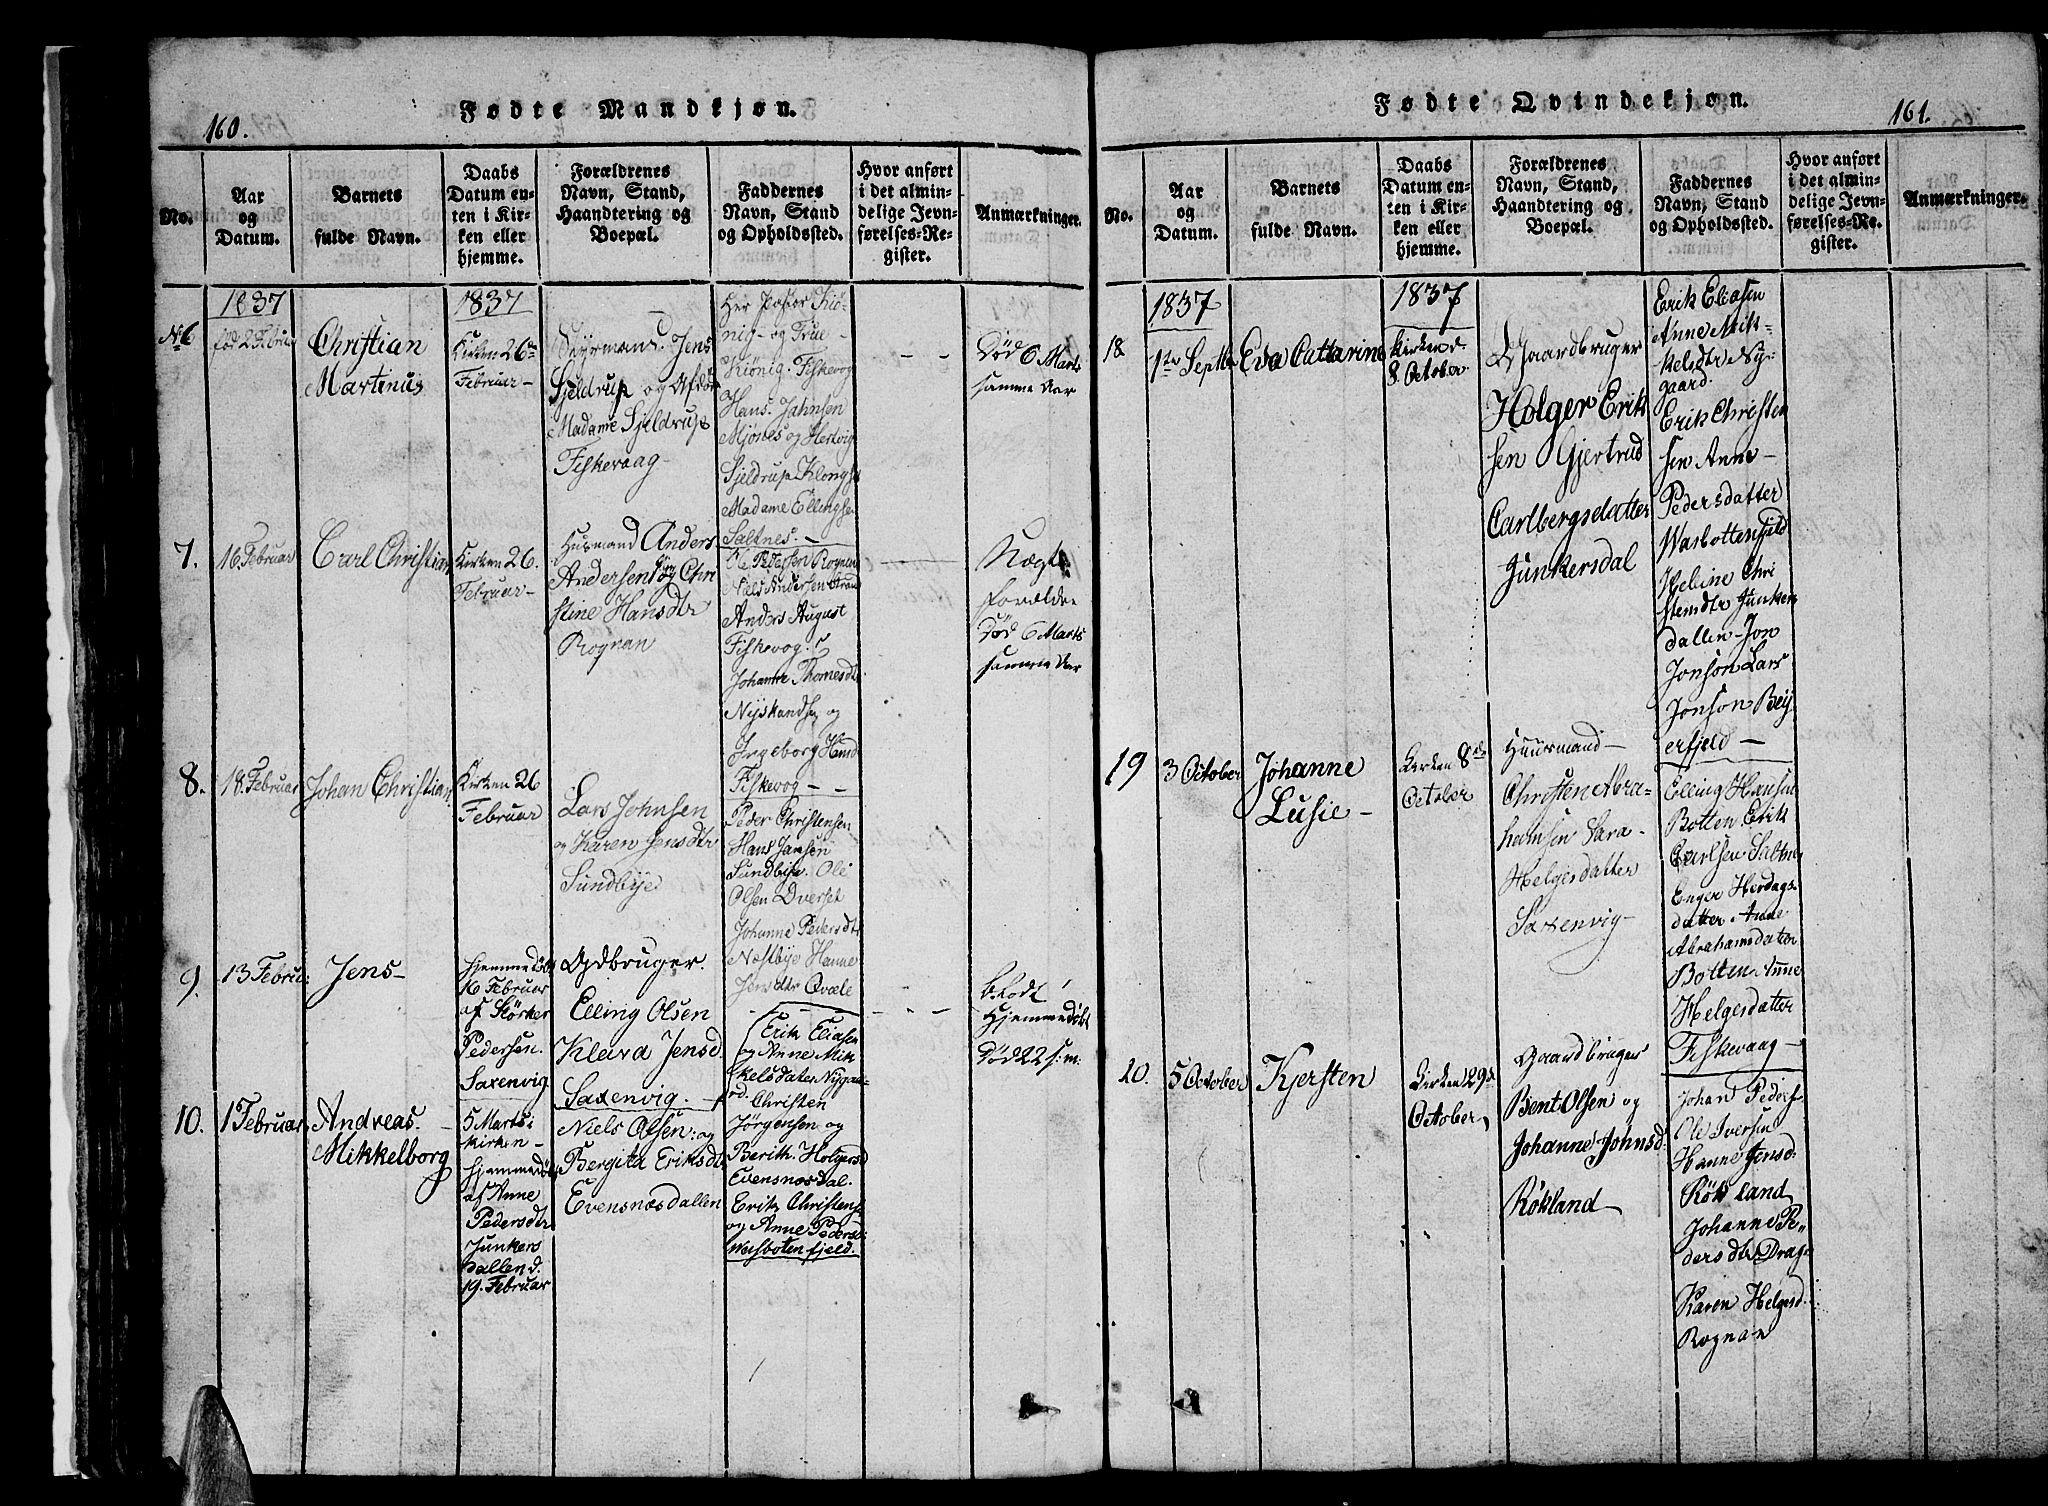 160.
Fødte Mandkjøn.
No.
Aar
og
Datum.
Barnets
fulde Navn.
Daabs
Datum en-
ten i Kir-
ken eller
hjemme.
Forældrenes
Navn, Stand,
Haandtering og
Boepæl.
Faddernes
Navn, Stand
og Opholdssted.
Hvor anført
i det almin-
delige Jevn-
førelses-Re-
gister.
Anmærkninger.
1837
1837
No 6
Christian
Martinus
Kirken 26
Februar-
Jens
Sjeldrup og
Madame Sjeldrup
Fiskevaag-
Her Pastor Kiø-
nig- og Frue-
Kiönig. Fiskevog
Hans Jahnsen
Mjönes og Hertvig
Sjeldrup
Madame Ellingse
Saltnes.-
Död 6 Marts
samme Aar
7.
16. Februar
Carl Christian
Kirken 26.
Februar-
Huusmand Anders
Andersen og Chri
stine Hansdtr
Rognan
Ole Pedersen Rognan
Niels Andersen
Anders August
Fiskevog.
Johanne Thomesdtr
og
Ingeborg Hansd
Fiskevog--
forældre
Död 6 Marts
samme Aar
8.
18. Februar
Johan Christian.
Kirken 26
Februar
Lars Johnsen
og Karen Jensdtr
Sundbye
Peder Christensen
Hans Jansen
Sundbye. Ole
Olsen Qverset
Johanne Pedersdtr
Næstbye Hanne
Jensdtr Qvæle
9.
13 Februa:
Jens-
Hjemmedöbt
16 Februar
af Störker
Pedersen.
Saxenvig
Elling Olsen
Jensd.
Saxenvig.-
Erik Eliasen
og Anne Mik
kelsdater Nygaa-
rd.
Hjemmedöbt
Död 22 s: m:
10.
1 Februar
Andreas.
Mikkelborg
5 Marts i
kirken-
Hjemmedöbt
af Anne
Pedersdtr
Junkers
dallen d.
19. Februar
Niels Olsen: og
Bergita Eriksdtr
Evensnæsdallen
Christen
Jörgensen og
Berith. Holgersd
Evensnæsdal.
Erik Christens
og Anne Pedersd:
Wasbotenfjeld.
Fødte Qvindekjøn.
161.
No.
Aar
og
Datum.
Barnets
fulde Navn.
Daabs
Datum en-
ten i Kir-
ken eller
hjemme.
Forældrenes
Navn, Stand,
Haandtering og
Boepæl.
Faddernes
Navn, Stand
og Opholdssted.
Hvor anført
i det almin-
delige Jevn-
førelses-Re-
gister.
Anmærkninger.
1837
1837
18
1te Septbr
Eva Cattarine
Kirken d.
8. October
Gaardbruger
Holger Erik
sen Gjertrud
Carlbergsdatter
Junkersdal
Erik Eliasen
Anne Mik-
kelsdtr Ny-
gaard.
Erik Christen
sen Anne-
Pedersdatter
Wasbottenfjeld
Heline Chri
stensdtr Junkers
dallen-Jon
Jonson Lars
Jonson Bey
erfjeld-
19
3 October
Johanne
Lusie-
Kirken 8de
October
Huusmand-
Christen Abra-
hamsen Sara-
Helgesdatter
Saxenvig-
Elling Hansen
Botten Erik
Carlsen Saltne
Enger Herdags
datter Anne
Abrahamsdatter
Botten Anne
Helgesdatter
Fiskevaag-
20.
5 October
Kjersten
Kirken 29d
October,
Gaardbruger
Bent Olsen og
Johanne Johnsd.
Rökland
Johan Peders
Ole Iversen
Hanne Jensd:
Rökland
Johanne Pe-
dersdtr Drag-
Karen Helgesd.
Rognan